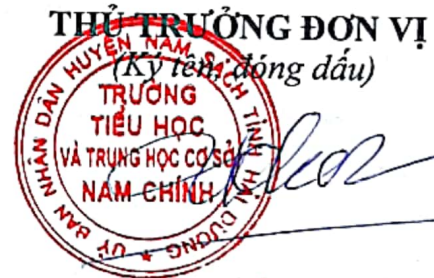 THỦ TRƯỞNG ĐƠN VỊ
(Ký tên, đóng dấu)
ỦY BAN NHÂN DÂN HUYỆN NAM SÁCH TỈNH HẢI DƯƠNG
TRƯỜNG
TIỂU HỌC
VÀ TRUNG HỌC CƠ SỞ
NAM CHÍNH